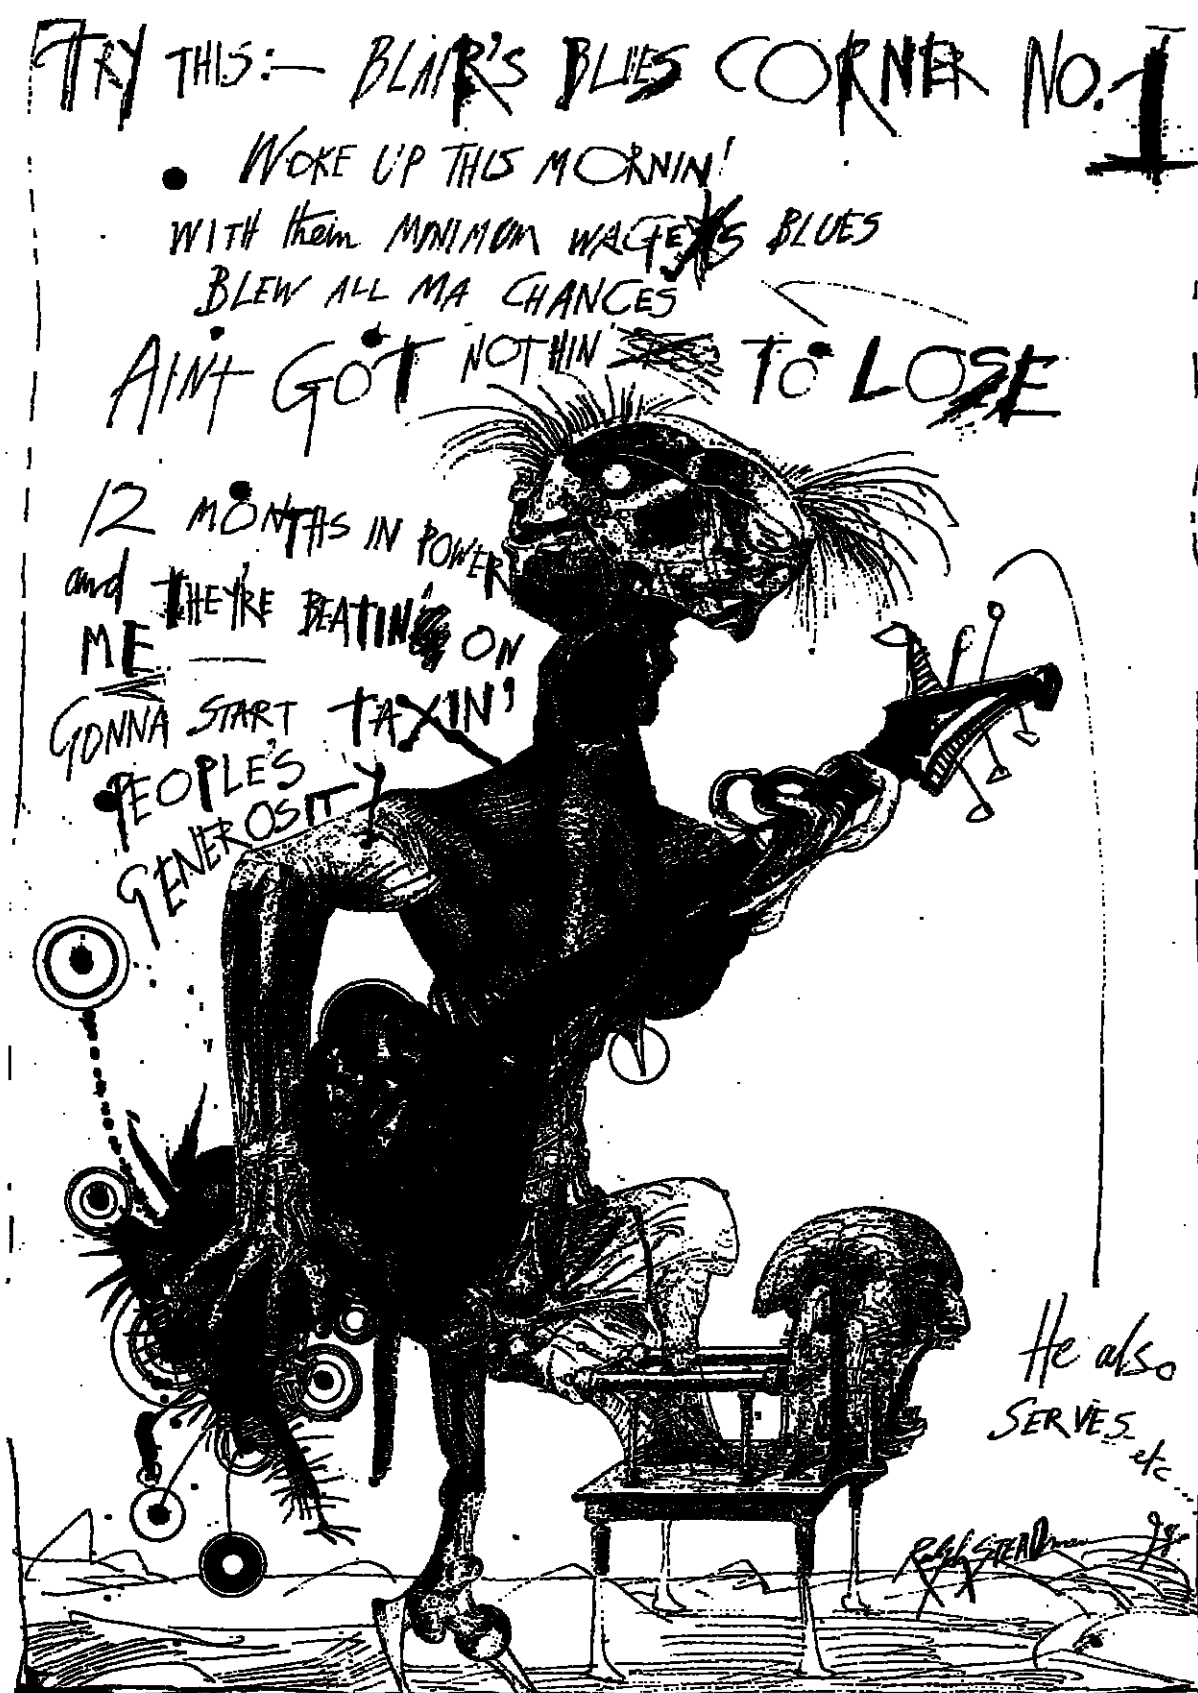 TRY THIS:— BLAIR'S BLUES CORNER NO. 1
WOKE UP THIS MORNIN'
WITH them MINIMUM WAGES BLUES
BLEW ALL MA CHANCES
AIN'T GOT NOTHIN' TO LOSE
12 MONTHS IN POWER
and THEY'RE BEATIN' ON
ME —
GONNA START TAXIN'
PEOPLE'S
GENEROSITY
He also
SERVES
etc
Ralph STEADman